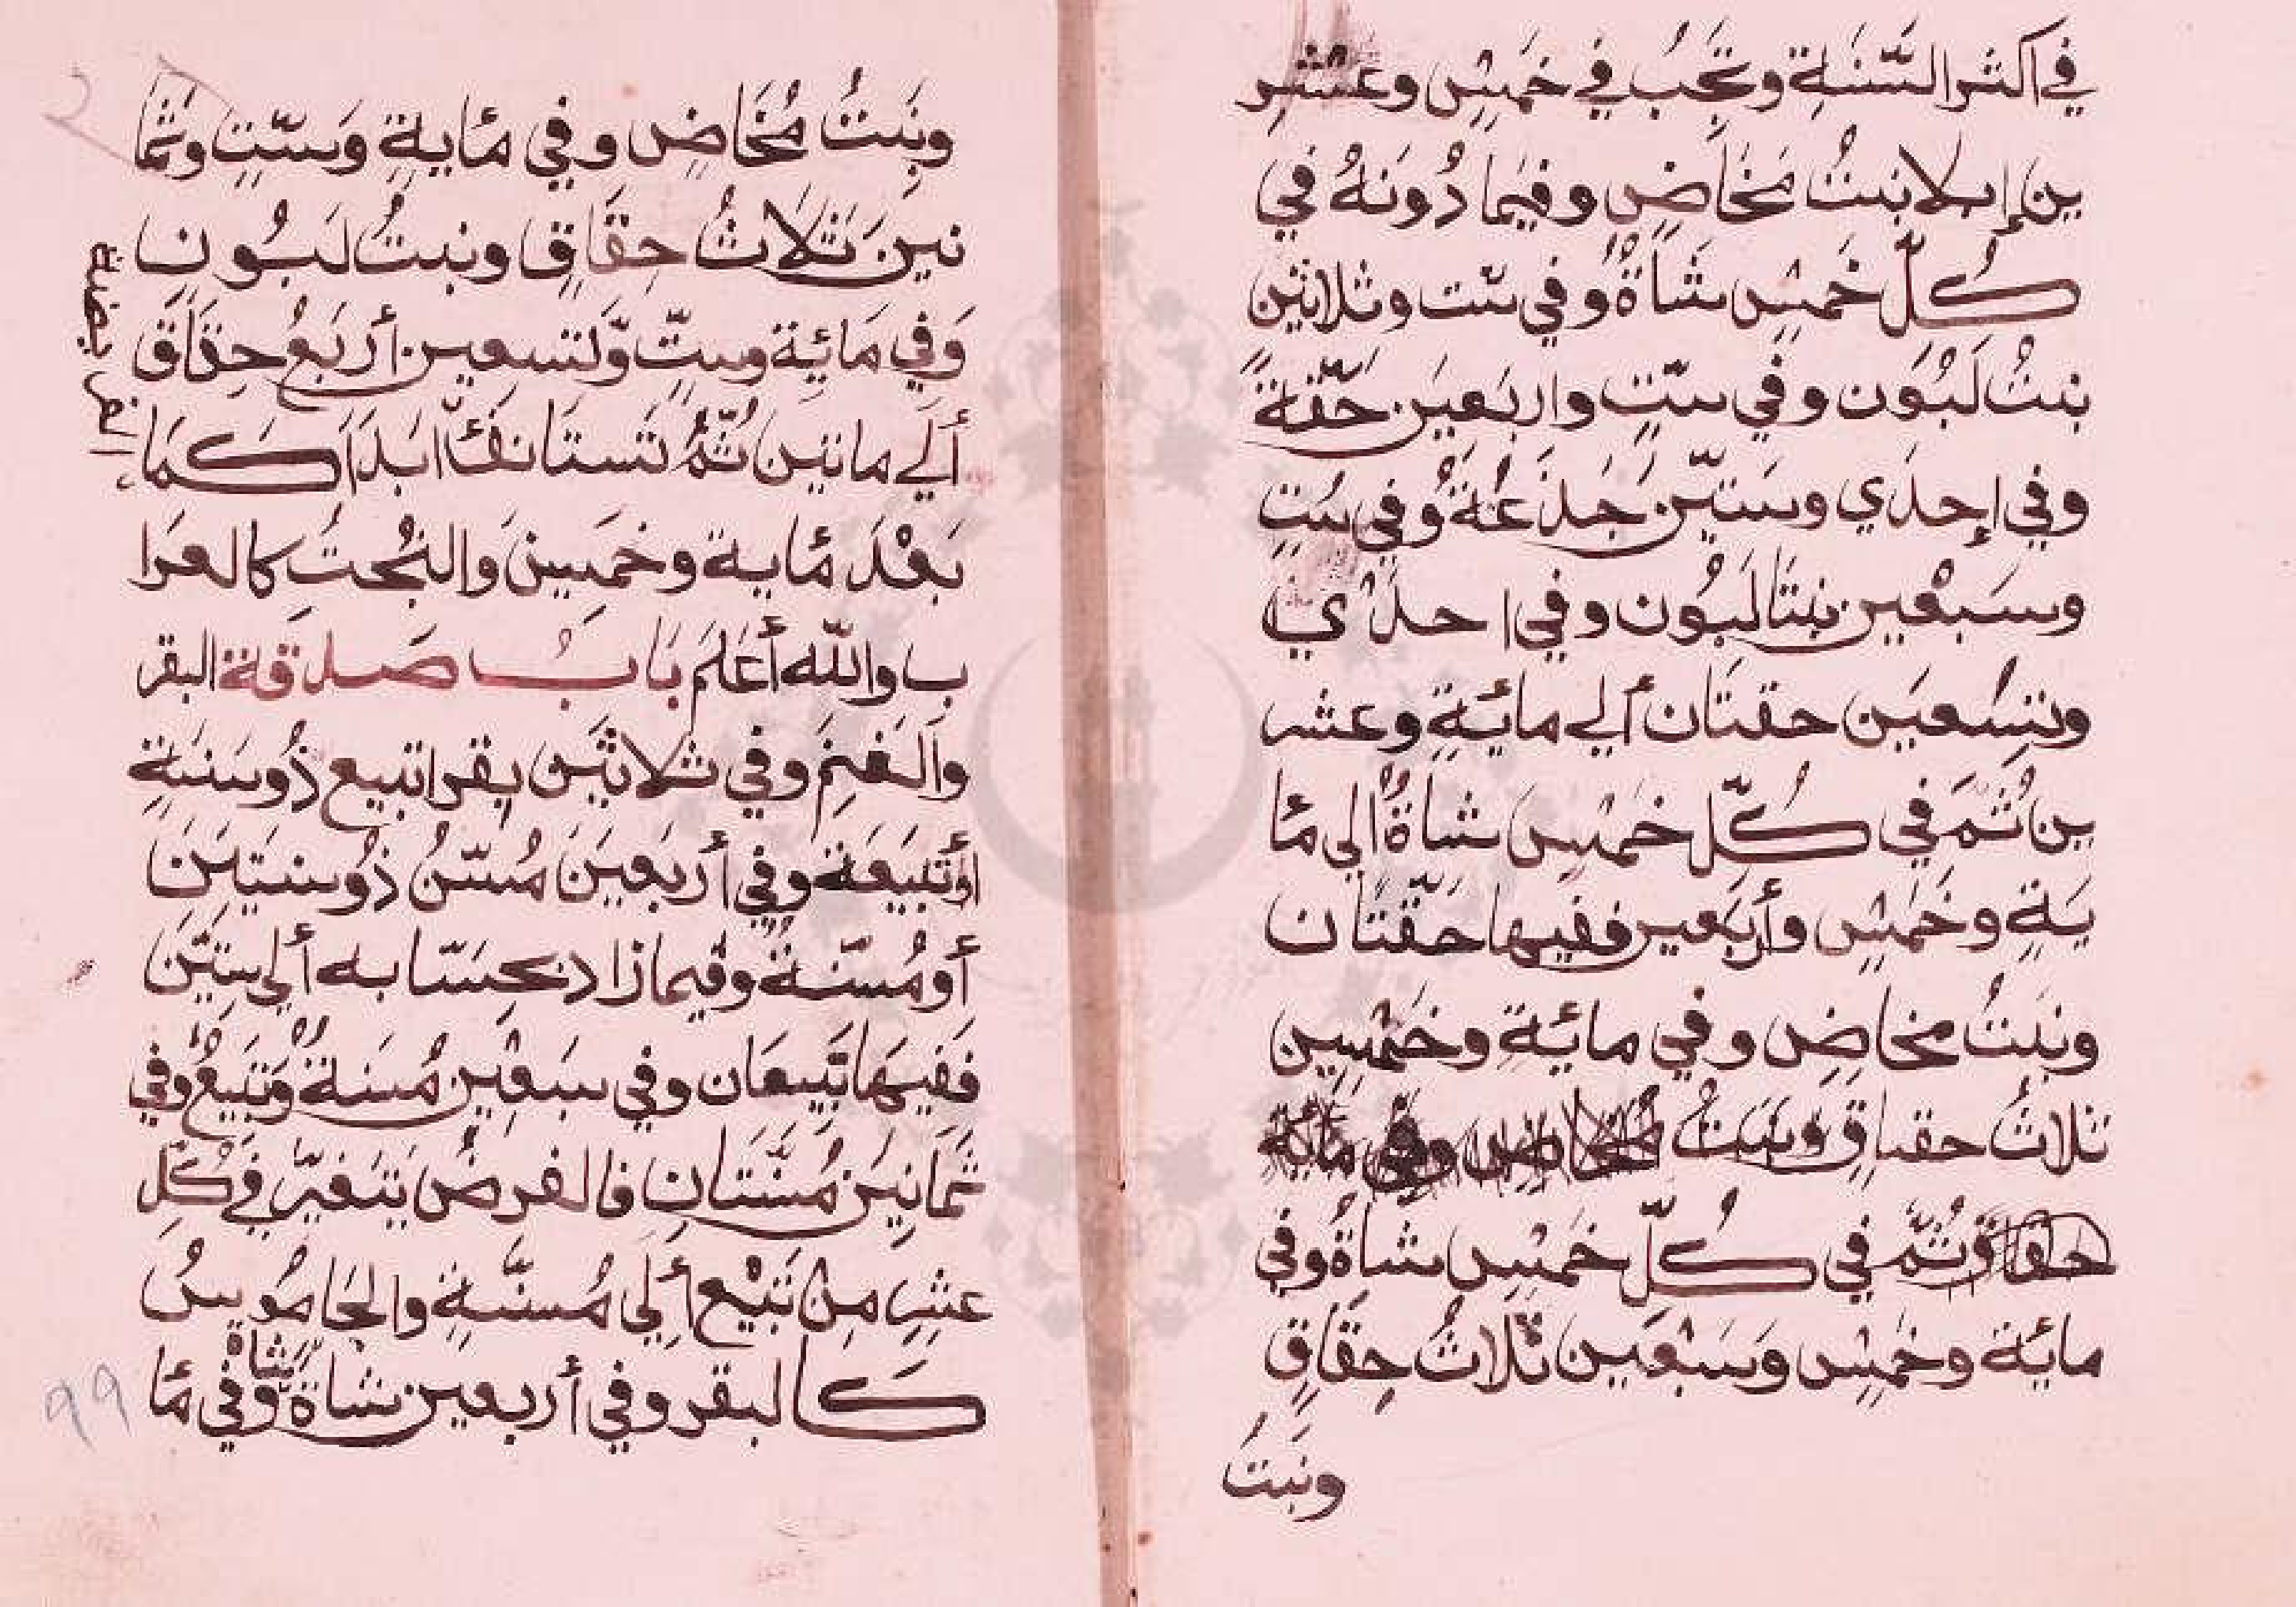 في أكثر السَّنَةِ وتَجِبُ في خَمْسٍ وعشر
ين إبلا بنتُ مَخَاضٍ وفيمَا دُونَهُ في
كُلِّ خَمْسٍ شَاةٌ وفي ستت وثلاثين
بنتُ لَبُوَن وفَي ستّتٍ واربَعيَن حِقّةً
وفي إحدَي وستّين جَذَعَةٌ وفي ستٍ
وسَبْعين بنتَا لَبُون وفي احدْي
وتِسْعيَن حقتَان ألي مايَةٍ وعشر
ين ثُمَ في كُلِّ خَمْسٍ شاةٌ الى مأ
يَةٍ وخَمْسٍ وأربَعين ففيها حَقّتَان
وبنتُ مخاضٍ وفي مايَةٍ وخَمْسين
ثلاثُ حقاقٍ وبنَتُ
حقاق وثُمَّ في كُلِّ خَمْسٍ شاةٌ وفي
مايَة وخمْسٍ وَسَبْعَين ثَلاثُ حِقَاقٍ
وبنَتُ
وبنَتُ مُخَاضٍ وفي مأيةٍ وَستّتٍ وثَما
نينَ ثَلاثُ حِقَاقٍ وبنتُ لَبُونٍ
وَفي مَائِة وستٍّ وَّتسعين أربَعُ حِقَاَق
ألَي مأتين ثُمّ تَستَانفُ أبَدَاً كَمَا
بَعْدَ مأية وخمَسِينَ وَالبُختَ كالعرَا
ب والله أَعْلَم بَابُ صدقة البقر
واَلغَنِمَ وفي ثلاثَين بقرا تبيع ذُوسَنَةٍ
أوتَبيَعَة وفي أربَعيَن مُسّنُ ذُوسنَتَيَن
أو مُسّنةٌ وفيمازاد بحِسَابه ألي ستّيَن
فَفيَهَا تَبيعَان وفي سَبعْين مُسَنةٌ وَتَبيَعٌ وفي
ثَمَانيَن مُسنَّتان فالفرضُ يتَغيّر في كُلِ
عشرِ مِن تَبْيع ألِي مُسنَّةٍ والجَامُوسُ
كالبقر وفي أربعين شاة شاةٌ وفي مأ
٩٩